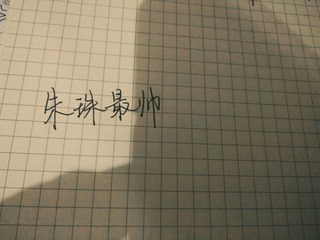 朱珠最帅